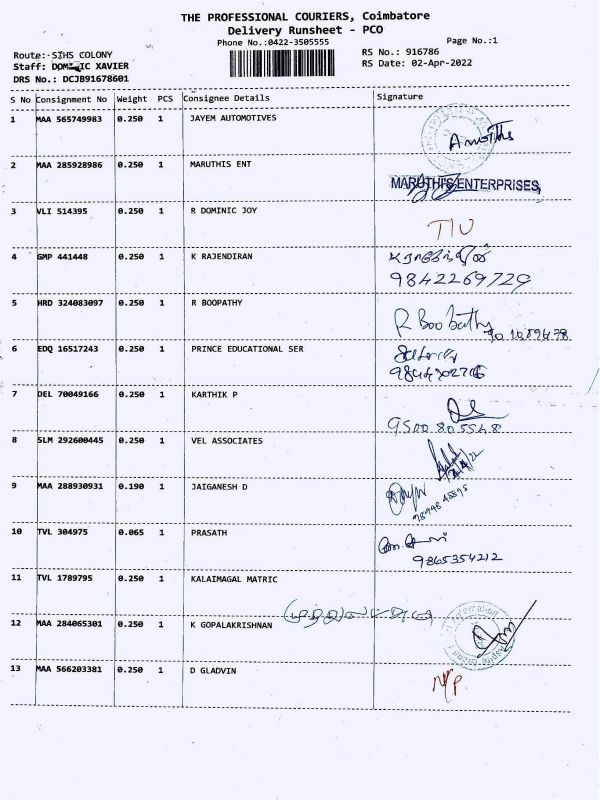 THE PROFESSIONAL COURIERS, Coimbatore
Delivery Runsheet - PCO
Phone No.:0422-3505555
Page No.:1
Route:-SIHS COLONY
RS No.: 916786
Staff: DOMINIC XAVIER
RS Date: 02-Apr-2022
DRS No.: DCJB91678601
S No Consignment No Weight PCS Consignee Details Signature
1 MAA 565749983 0.250 1 JAYEM AUTOMOTIVES
2 MAA 285928986 0.250 1 MARUTHIS ENT MARUTHI'S ENTERPRISES,
3 VLI 514395 0.250 1 R DOMINIC JOY
4 GMP 441448 0.250 1 K RAJENDIRAN
9842269729
5 HRD 324083097 0.250 1 R BOOPATHY R Boobathy
6 EDQ 16517243 0.250 1 PRINCE EDUCATIONAL SER
7 DEL 70049166 0.250 1 KARTHIK P
9500805548
8 SLM 292600445 0.250 1 VEL ASSOCIATES
9 MAA 288930931 0.190 1 JAIGANESH D
10 TVL 304975 0.065 1 PRASATH
9865354212
11 TVL 1789795 0.250 1 KALAIMAGAL MATRIC
12 MAA 284065301 0.250 1 K GOPALAKRISHNAN
13 MAA 566203381 0.250 1 D GLADVIN